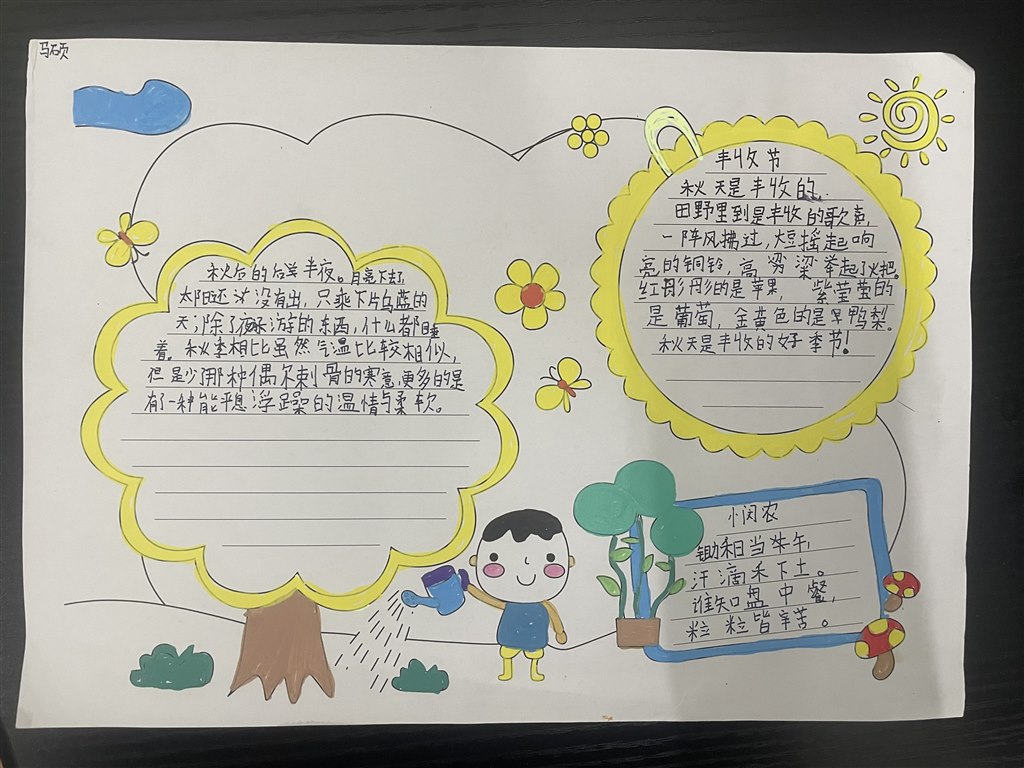 马硕
秋后的后半夜。月亮下去了,
太阳还没有出,只乘下片乌蓝的
天;除了夜游的东西,什么都睡
着。秋季相比虽然气温比较相似,
但是少那种偶尔刺骨的寒意,更多的是
有了一种能平息浮躁的温情与柔软。
丰收节
秋天是丰收的.
田野里到是丰收的歌颂,
一阵风拂过,摇起响
亮的铜铃,高粱举起了火把。
红彤彤的是苹果,紫莹莹的
是葡萄,金黄色的是早鸭梨。
秋天是丰收的好季节!
悯农
锄禾日当午,
汗滴禾下土。
谁知盘中餐,
粒粒皆辛苦。